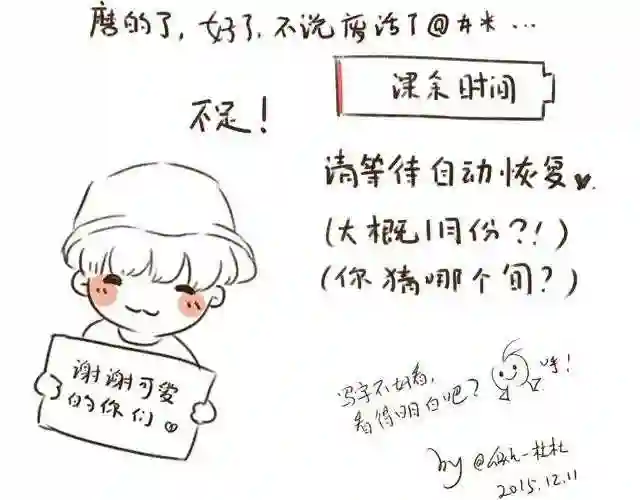 磨的了,好了,不说废话了@#*…
课余时间
不足!
请等待自动恢复
(大概1月份?!)
(你猜哪个旬?)
谢谢可爱
的你们
写字不好看,
看得明白吧?
哼!
by @
2015.12.11